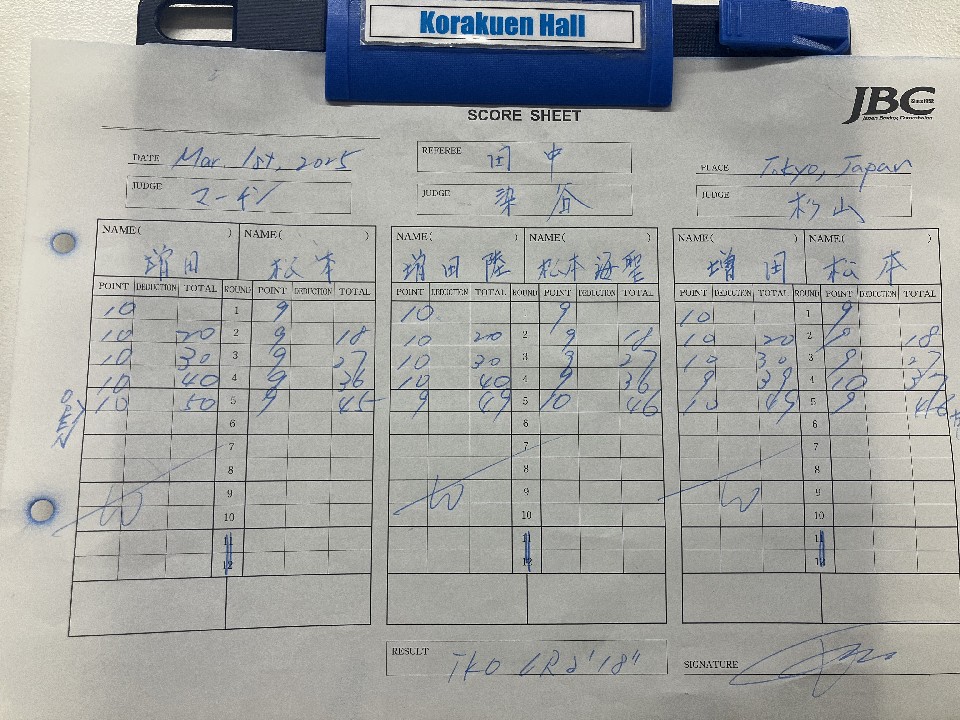 Korakuen Hall
SCORE SHEET
JBC Since1952
Japan Boxing Commission
DATE Mar. 1st, 2025 REFEREE 田中 PLACE Tokyo, Japan
JUDGE マーチン JUDGE 染谷 JUDGE 杉山
NAME( ) NAME( ) NAME( ) NAME( ) NAME( ) NAME( )
増田 松本 増田陸 松本海聖 増田 松本
POINT DEDUCTION TOTAL ROUND POINT DEDUCTION TOTAL POINT DEDUCTION TOTAL ROUND POINT DEDUCTION TOTAL POINT DEDUCTION TOTAL ROUND POINT DEDUCTION TOTAL
10 1 9 10 1 9 10 1 9
10 20 2 9 18 10 20 2 9 18 10 20 2 9 18
10 30 3 9 27 10 30 3 9 27 10 30 3 9 27
10 40 4 9 36 10 40 4 9 36 9 39 4 10 37
OPEN 10 50 5 9 45 9 49 5 10 46 10 49 5 9 46
6 6 6
7 7 7
8 8 8
9 9 9
10 10 10
11 11 11
12 12 12
RESULT TKO 2'18"
SIGNATURE